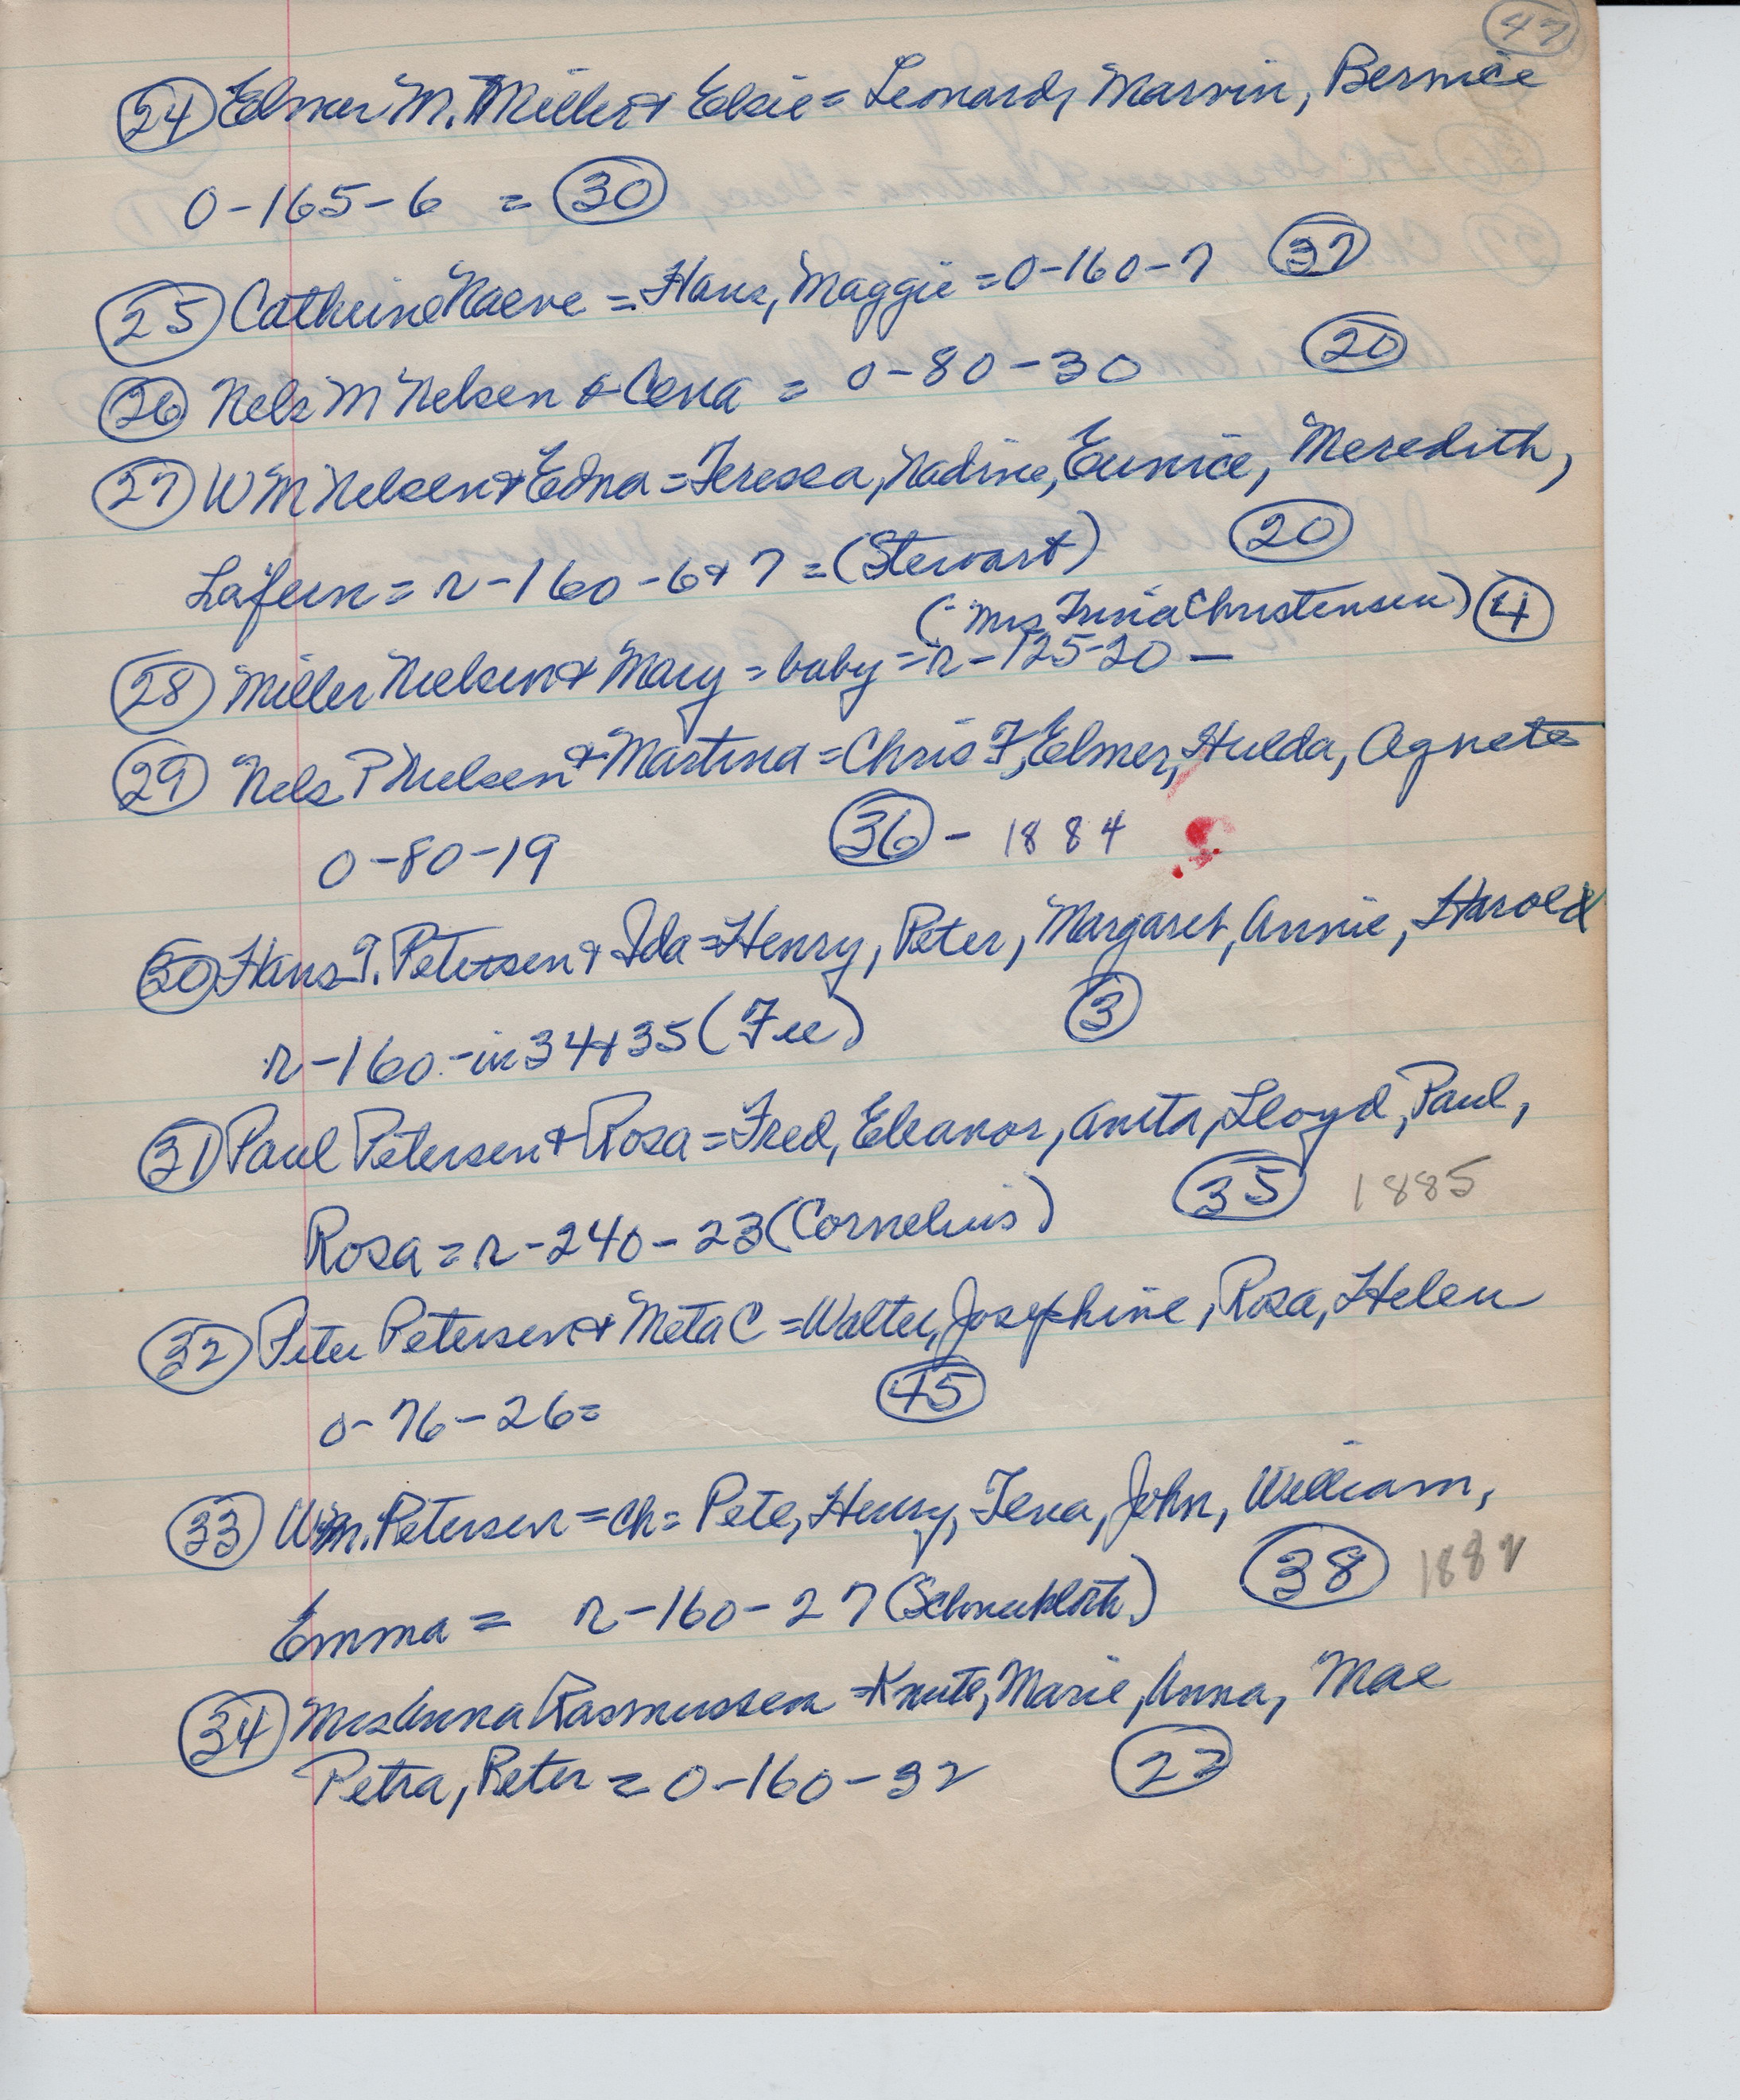 47
24 Elmer M. Miller & Elsie = Leonard, Marvin, Bernice
0-165-6 = 30
25 Catherine Naeve = Hans, Maggie = 0-160-7 32
26 Nels M Nelsen & Cena = 0-80-30 20
27 WM Nelsen & Edna = Teressa, Nadine, Eunice, Meredith,
Lafern = r-160-6 & 7 = (Stewart) 20
(Mrs Trina Christensen) 4
28 Miller Nielsen & Mary = baby = r-125-20 -
29 Nels P Nielsen & Martina = Chris F, Elmer, Hulda, Agnete
0-80-19 36 - 1884
30 Hans J. Petersen & Ida = Henry, Peter, Margaret, Annie, Harold
r-160-in 34 & 35 (Fee) 3
31 Paul Petersen & Rosa = Fred, Eleanor, Anita, Lloyd, Paul,
Rosa = r-240-23 (Cornelius) 35 1885
32 Peter Petersen & Meta C = Walter, Josephine, Rosa, Helen
0-76-26= 45
33 Wm. Petersen = ch = Pete, Henry, Tena, John, William,
Emma = r-160-27 38 1882
34 Mrs Anna Rasmussen = Knute, Marie, Anna, Mae
Petra, Peter = 0-160-32 23